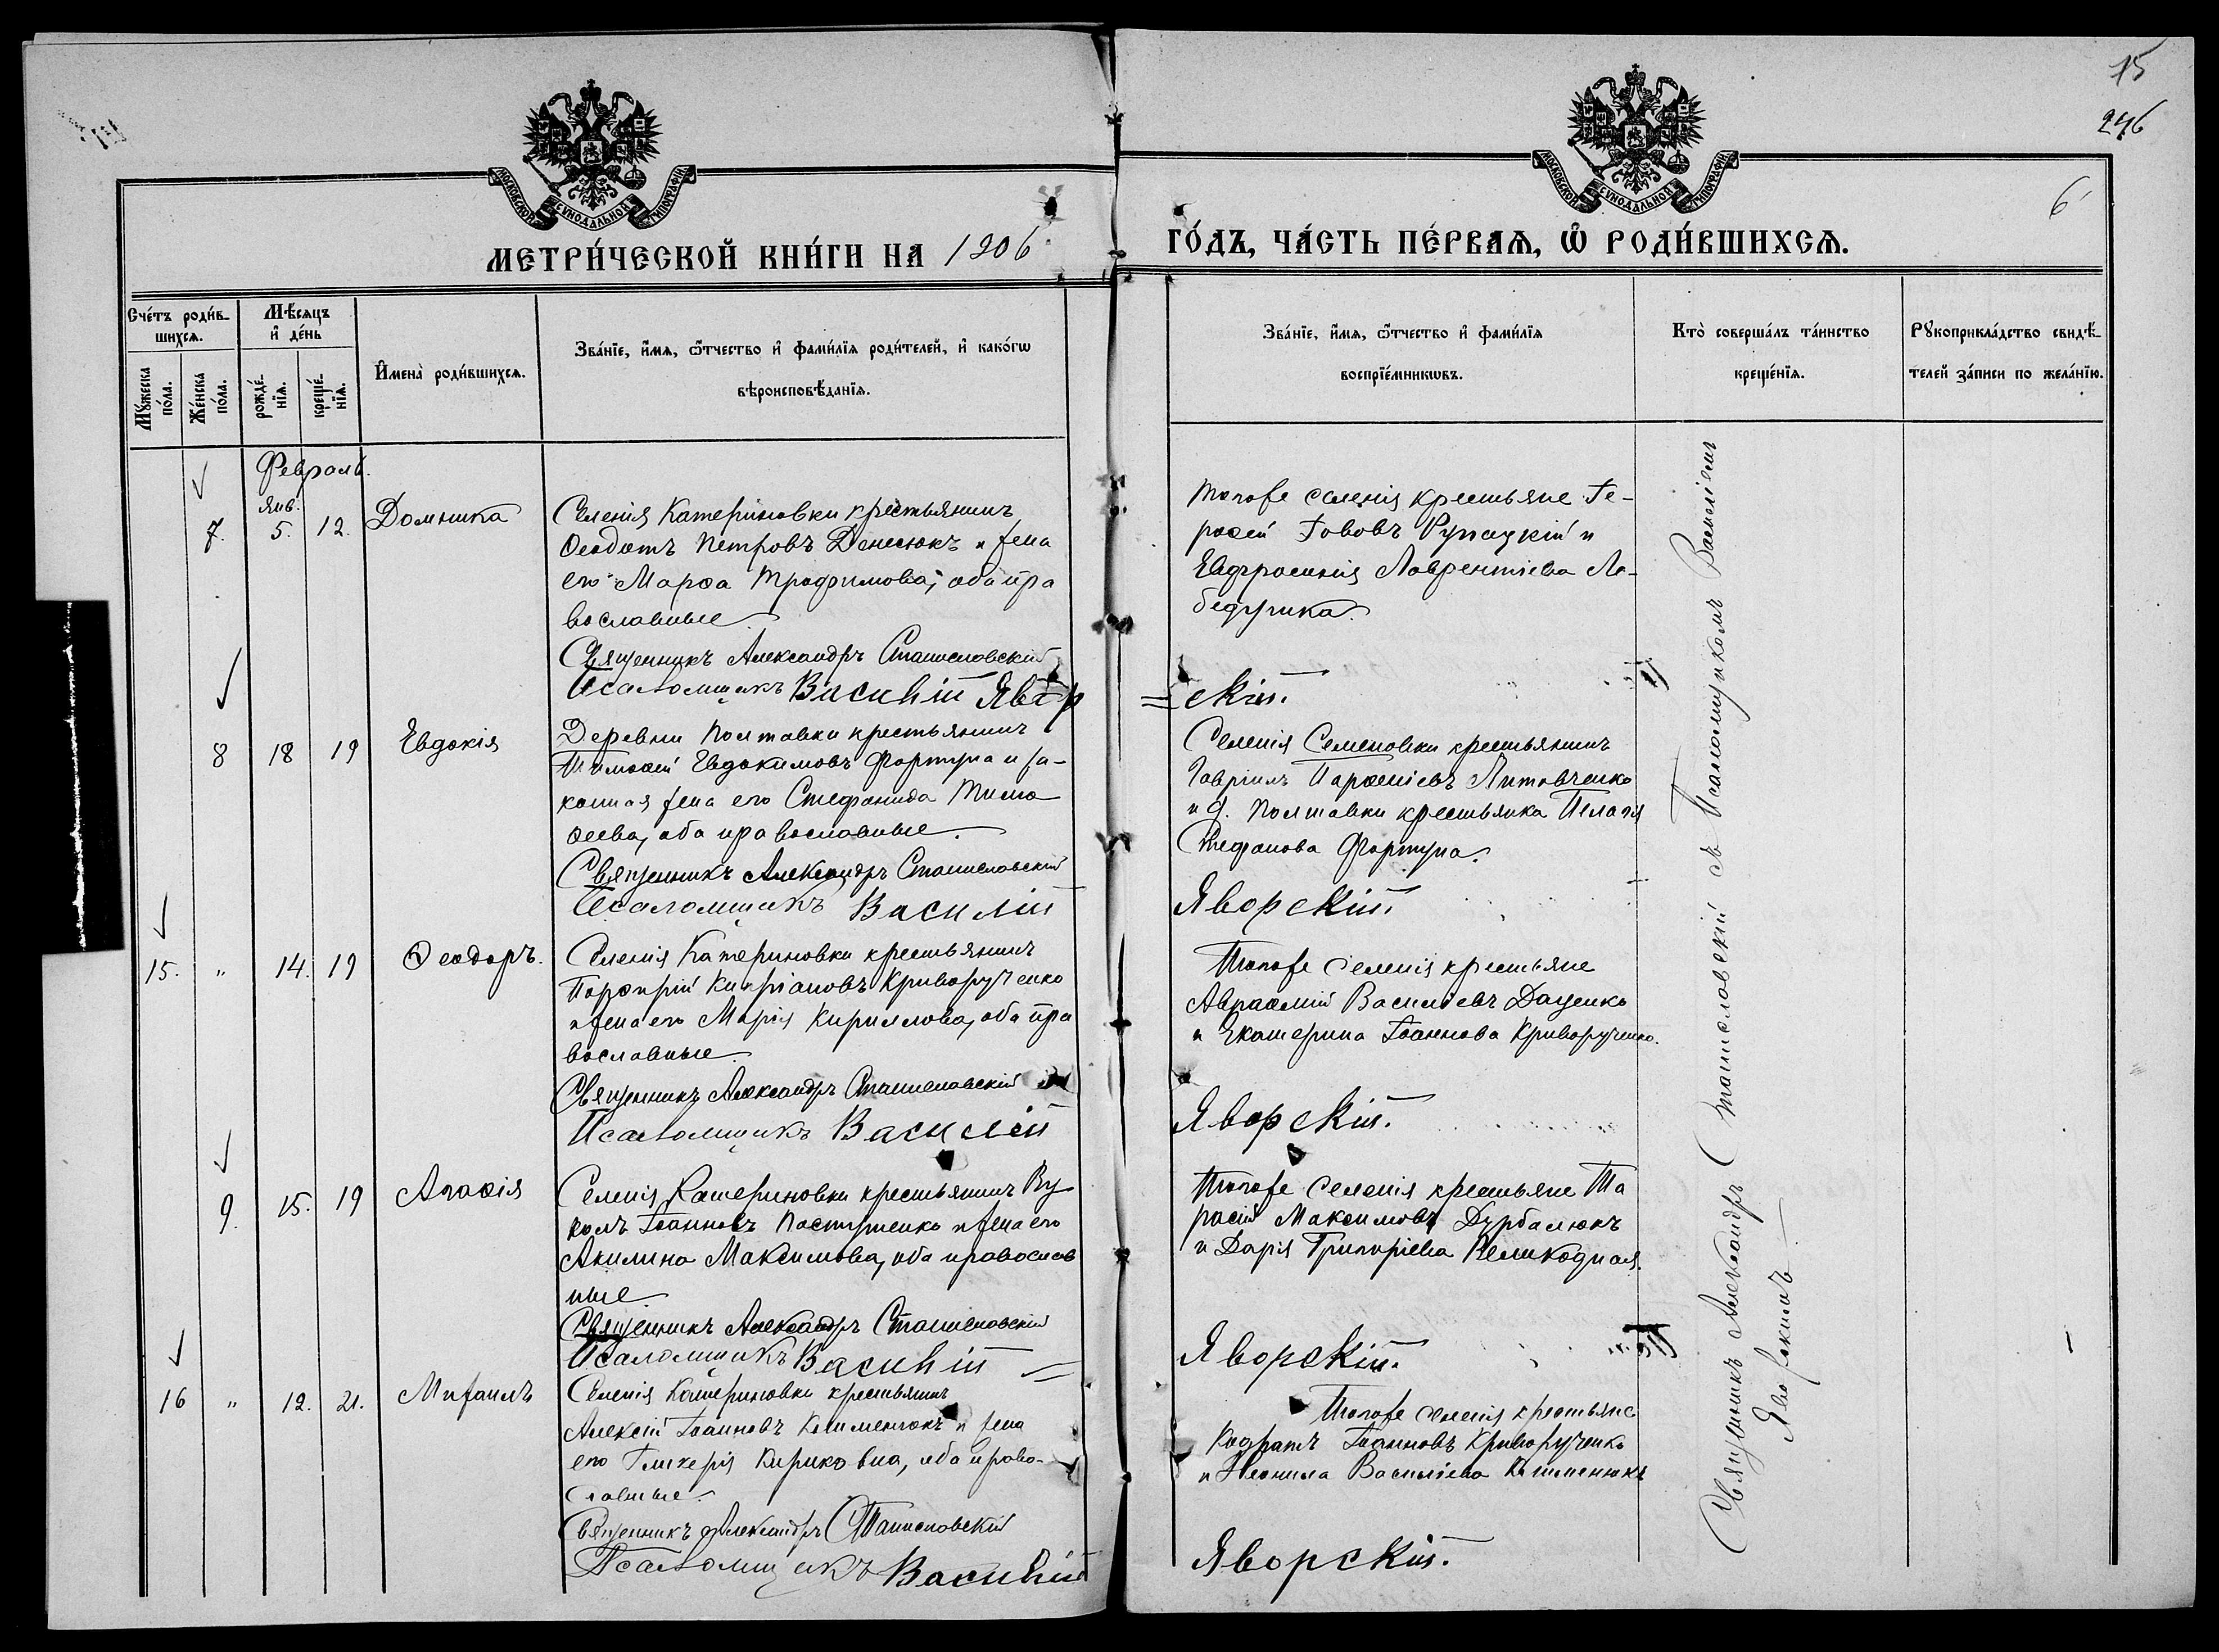 15
246
6
МОСКОВСКОЙ СѴНОДАЛЬНОЙ ТИПОГРАФІИ
МОСКОВСКОЙ СѴНОДАЛЬНОЙ ТИПОГРАФІИ
МЕТРИ́ЧЕСКОЙ КНИ́ГИ НА 1906
ГО́ДЪ, ЧА́СТЬ ПЕ́РВАѦ, Ѡ҆ РОДИ́ВШИХСѦ.
Сче́тъ роди́в-
шихсѧ.
Мꙋ́жеска
по́ла.
Же́нска
по́ла.
Мѣ́сѧцъ
и҆ де́нь
рожде́-
нїѧ.
креще́-
нїѧ.
И҆мена̀ роди́вшихсѧ.
Зва́нїе, и҆́мѧ, ѻ҆́тчество и҆ фами́лїѧ роди́телей, и҆ како́гѡ
вѣроисповѣ́данїѧ.
Зва́нїе, и҆́мѧ, ѻ҆́тчество и҆ фами́лїѧ
воспрїе́мникѡвъ.
Кто̀ соверша́лъ та́инство
креще́нїѧ.
Рꙋкоприкла́дство свидѣ́-
телей за́писи по жела́нїю.
Февраль.
Янв.
7. 5. 12. Домника
Селенія Катериновки крестьянинъ
Ѳеодотъ Петровъ Денесюкъ и жена
его Марѳа Трофимова, оба пра
вославные
Священникъ Александръ Станиславскій
Псаломщикъ Василій Явор
Тогоже селенія крестьяне Ге-
расей Іововъ Рупацкій и
Евфросинія Лаврентіева Ле-
бедчука.
=скій.
8 18 19 Евдокія
Деревни Полтавки крестьянинъ
Тимоѳей Евдокимовъ Фортуна и за-
конная жена его Стефанида Тимо
ѳеева, оба православные.
Священникъ Александръ Станиславскій
Псаломщикъ Василій
Селенія Семеновки крестьянинъ
Гавріилъ Парѳеніевъ Литовченко
и д. Полтавки крестьянка Пелагія
Стефанова Фортуна.
Яворскій.
15. " 14. 19 Ѳеодоръ.
Селенія Катериновки крестьянинъ
Порфирій Кипріановъ Криворученко
и жена его Марія Кириллова, оба пра
вославные
Священникъ Александръ Станиславскій
Псаломщикъ Василій
Тогоже селенія крестьяне
Авраамій Василіевъ Даценко
и Екатерина Іоаннова Криворученко.
Яворскій.
9. 15. 19 Агаѳія
Селенія Катериновки крестьянинъ Ву
колъ Іоанновъ Пастушенко и жена его
Акилина Максимова, оба православ
ные
Священникъ Александръ Станиславскій
Псаломщикъ Василій =
Тогоже селенія крестьяне Та
расій Максимовъ Дурбалюкъ
и Дарія Григоріева Великодная.
Яворскій.
16 " 12. 21. Михаилъ
Селенія Катериновки крестьянинъ
Алексій Іоанновъ Клименюкъ и жена
его Гликерія Кириковна, оба право-
славные.
Священникъ Александръ Станиславскій
Псаломщикъ Василій
Тогоже селенія крестьяне
Кодратъ Іоанновъ Криворученко
и Неонила Василіева Клименюкъ
Яворскій.
Священникъ Александръ Станиславскій съ Псаломщикомъ Василіемъ
Яворскимъ